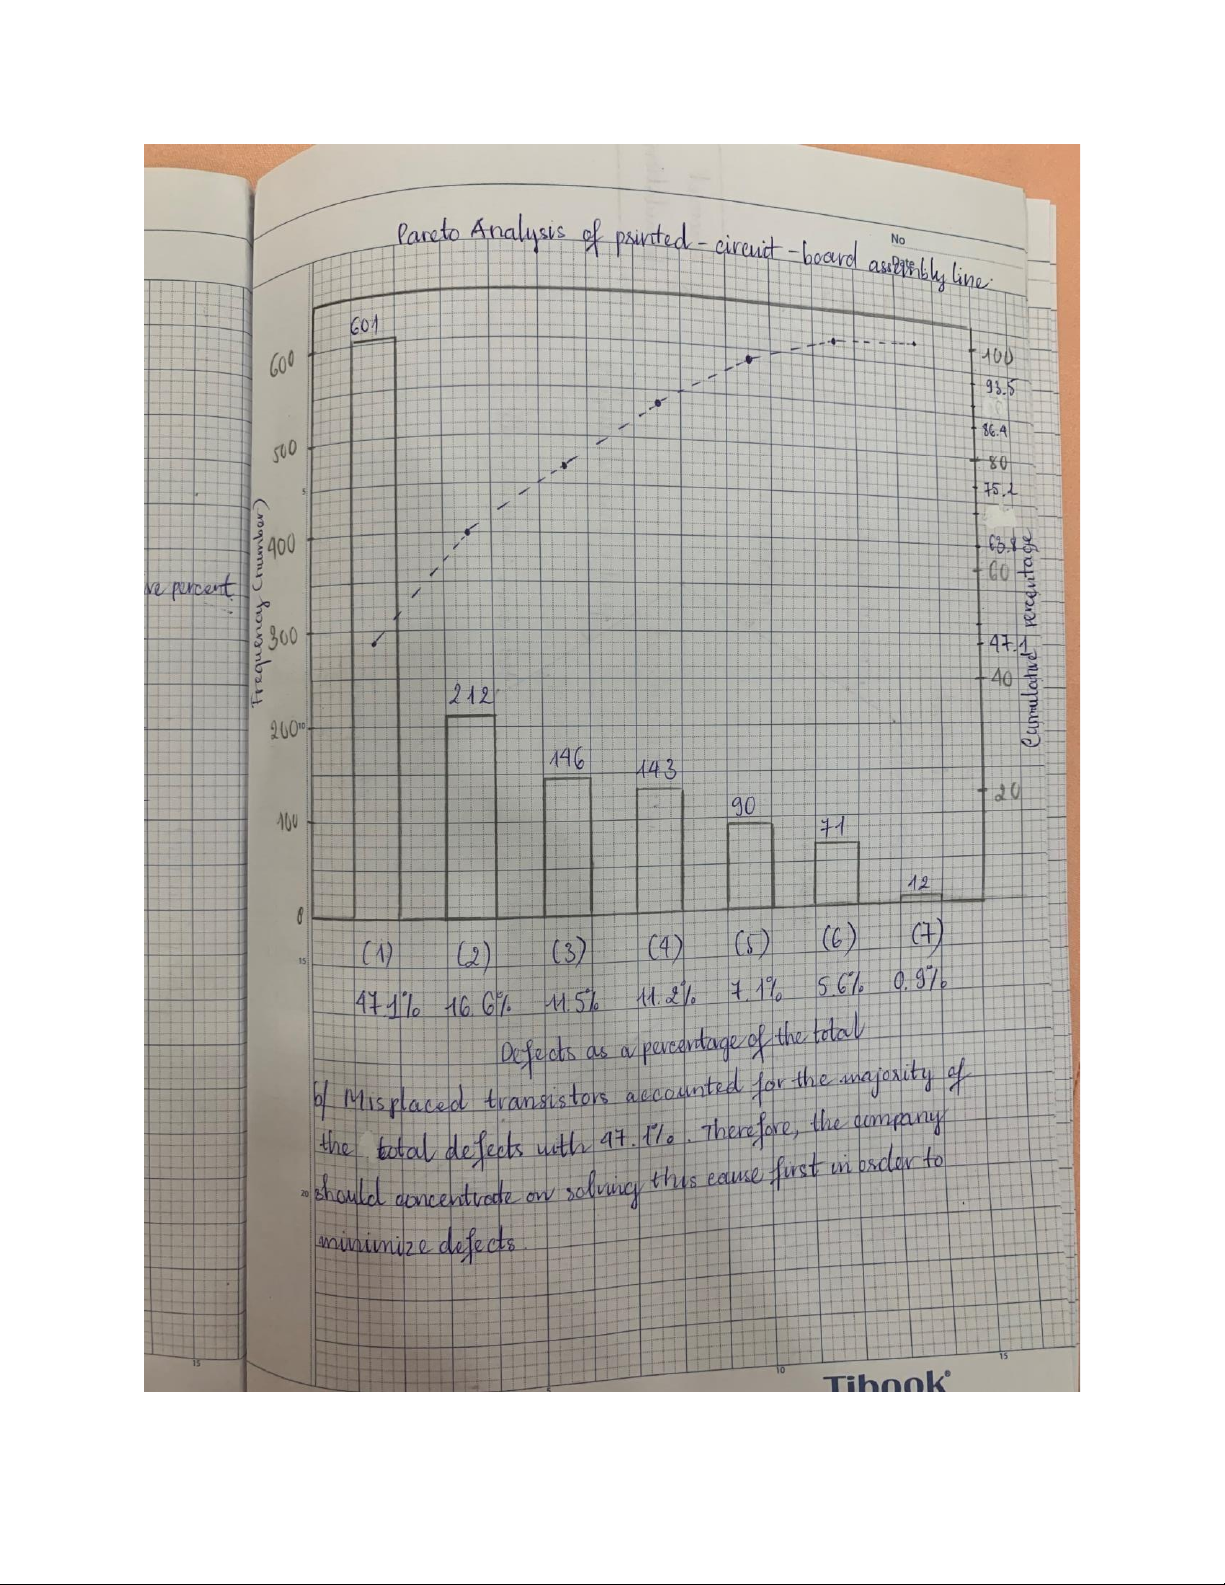 No
Date
Pareto Analysis of printed-circuit-board assembly line.
601
600
500
400
300
200
100
0
Frequency (number)
5
10
15
20
212
146
143
90
71
12
100
93.5
86.4
80
75.2
63.8
60
47.1
40
20
Cumulative percentage
ve percent.
(1) (2) (3) (4) (5) (6) (7)
47.1% 16.6% 11.5% 11.2% 7.1% 5.6% 0.9%
Defects as a percentage of the total
b/ Misplaced transistors accounted for the majority of
the total defects with 47.1%. Therefore, the company
should concentrate on solving this cause first in order to
minimize defects.
15
5
10
15
Tibook